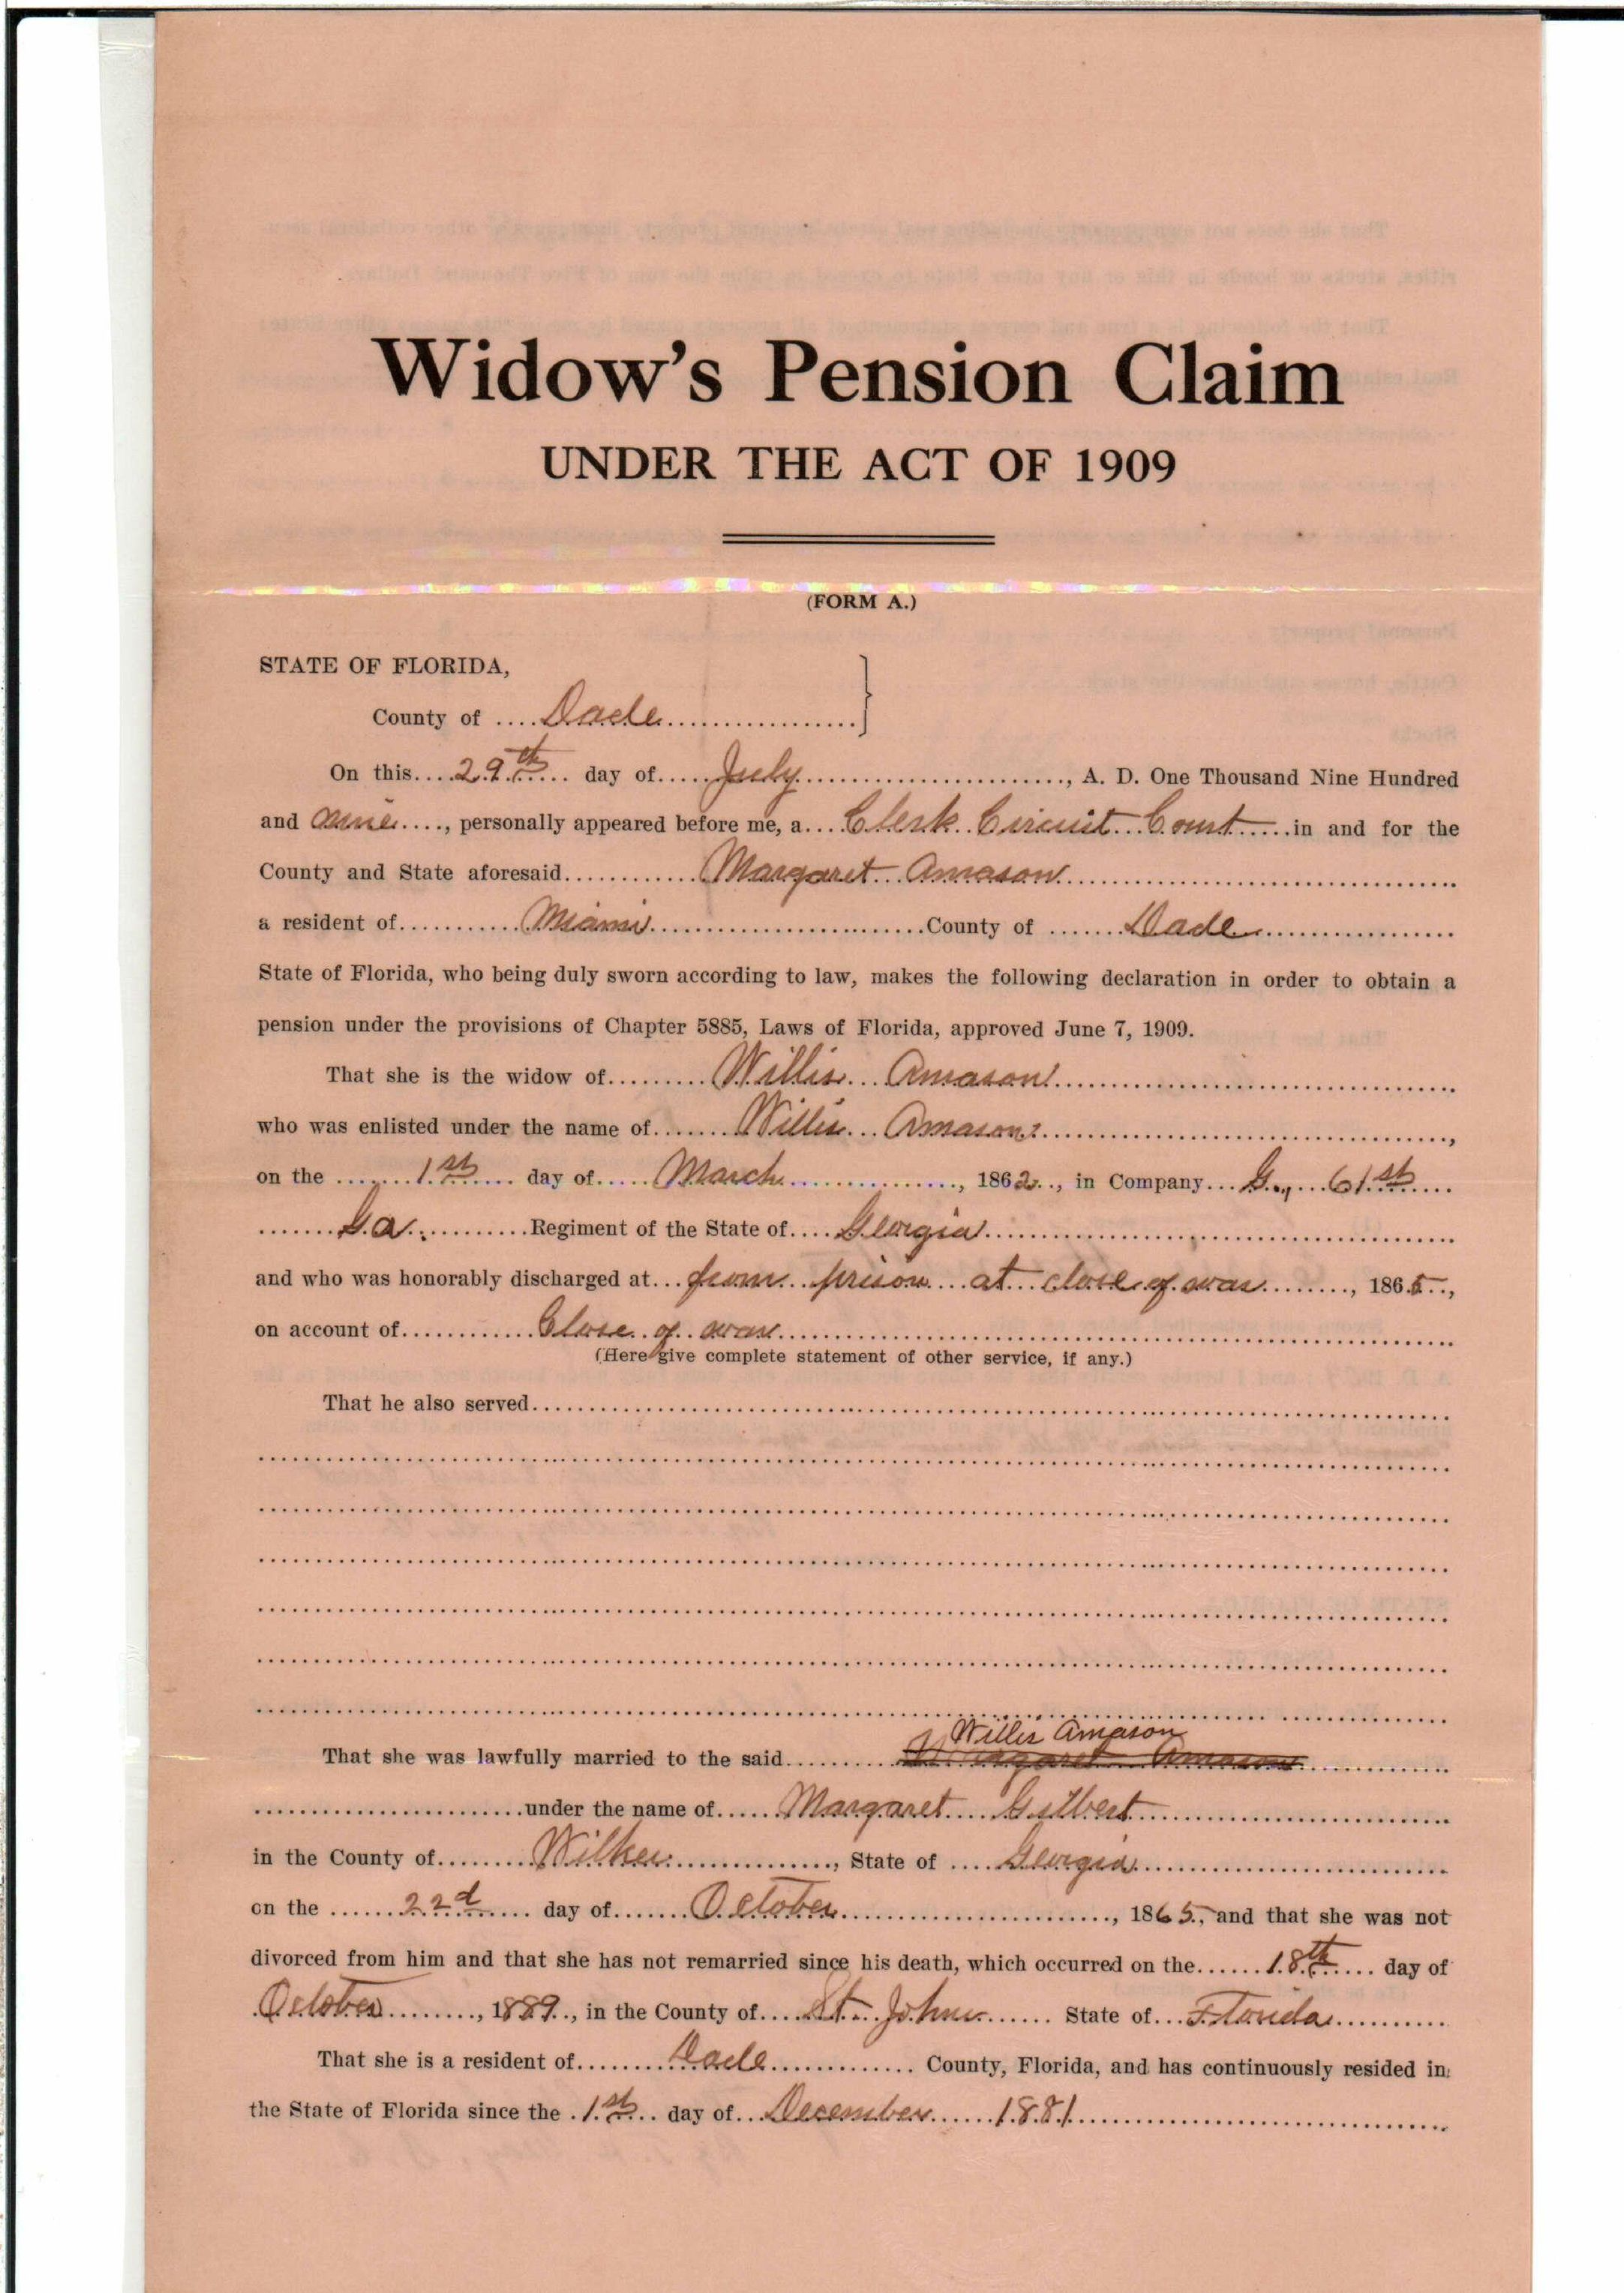 Widow's Pension Claim
UNDER THE ACT OF 1909
(FORM A.)
STATE OF FLORIDA,
County of Dade
On this 29th day of July, A. D. One Thousand Nine Hundred
and nine, personally appeared before me, a Clerk Circuit Court in and for the
County and State aforesaid Margaret Amason
a resident of Miami County of Dade
State of Florida, who being duly sworn according to law, makes the following declaration in order to obtain a
pension under the provisions of Chapter 5885, Laws of Florida, approved June 7, 1909.
That she is the widow of Willis Amason
who was enlisted under the name of Willis Amason
on the 1st day of March, 1862, in Company G., 61st
Ga. Regiment of the State of Georgia
and who was honorably discharged at from prison at close of war, 1865,
on account of Close of war
(Here give complete statement of other service, if any.)
That he also served
Willis Amason
That she was lawfully married to the said Margaret Amason
under the name of Margaret Gilbert
in the County of Wilkes, State of Georgia
on the 22d day of October, 1865, and that she was not
divorced from him and that she has not remarried since his death, which occurred on the 18th day of
October, 1889, in the County of St. Johns State of Florida
That she is a resident of Dade County, Florida, and has continuously resided in
the State of Florida since the 1st day of December 1881